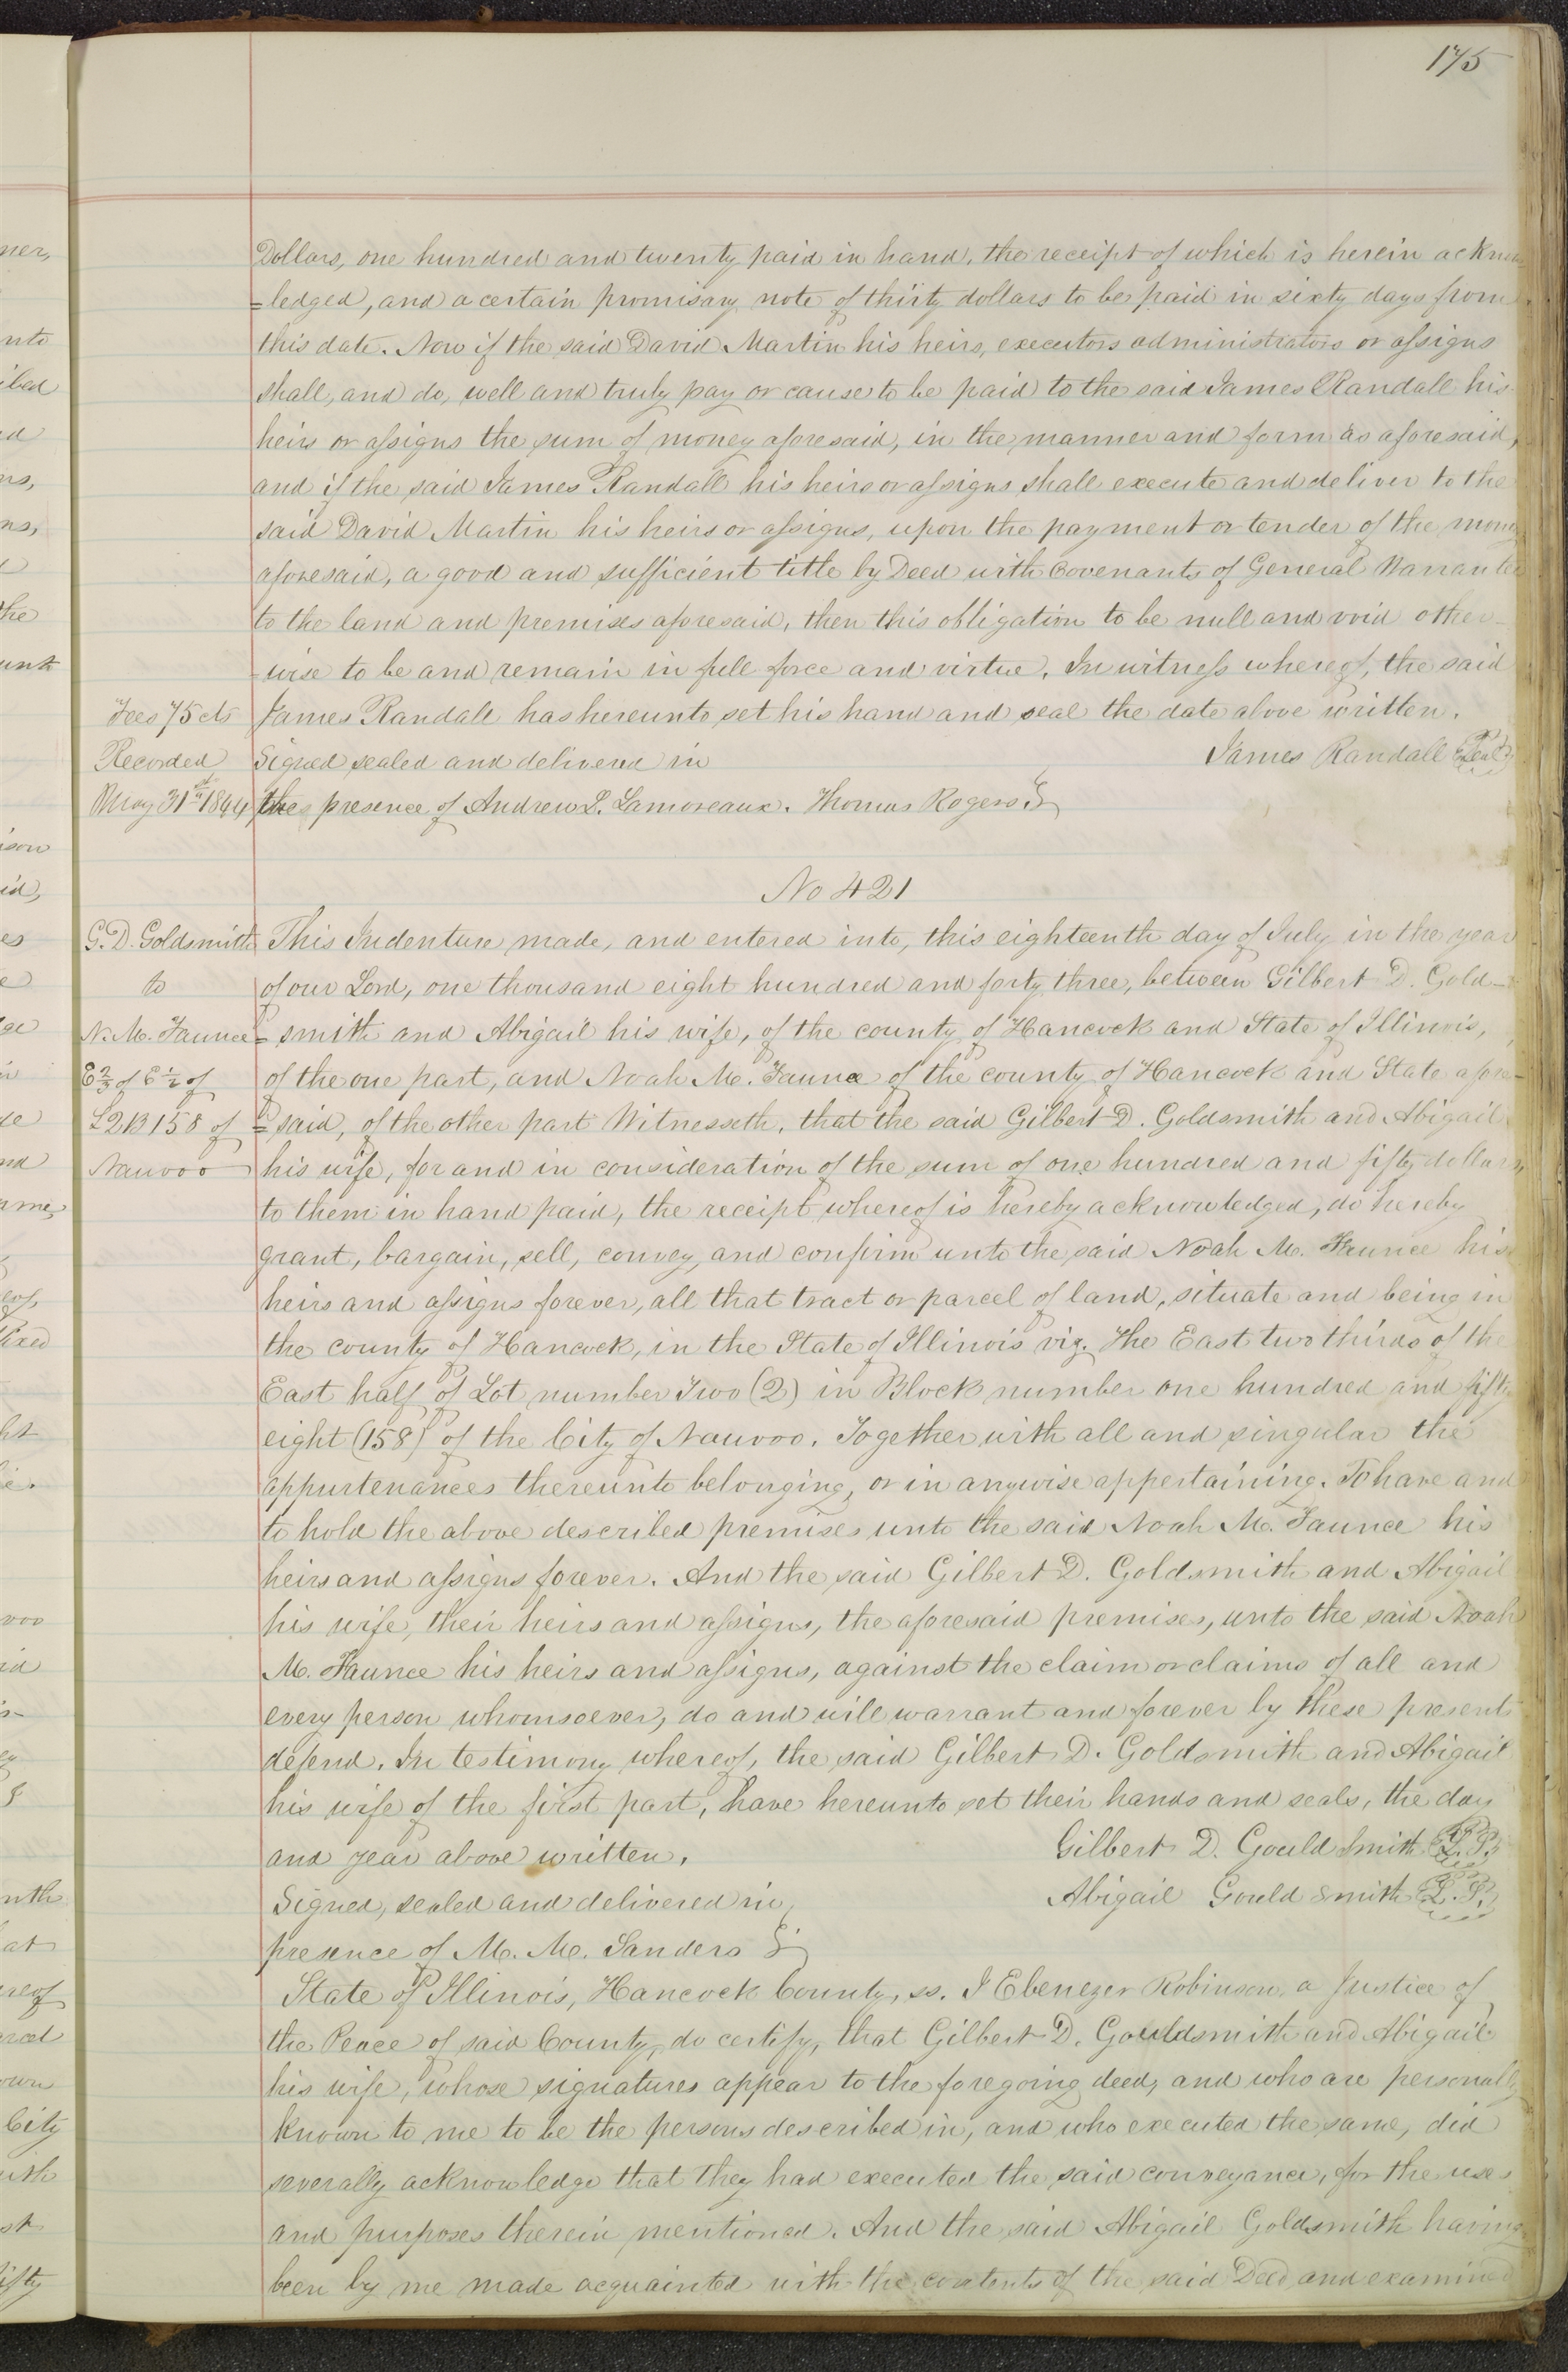 175
Dollars, one hundred and twenty paid in hand, the receipt of which is herein acknow
=ledged, and a certain promisary note of thirty dollars to be paid in sixty days from
this date. Now if the said David Martin his heirs, executors administrators or assigns
shall, and do, well and truly pay or cause to be paid to the said James Randall his
heirs or assigns the sum of money aforesaid, in the manner and form as aforesaid,
and if the said James Randall his heirs or assigns shall execute and deliver to the
said David Martin his heirs or assigns, upon the payment or tender of the money
aforesaid, a good and sufficient title by Deed with Covenants of General Warrantee
to the land and premises aforesaid, then this obligation to be null and void other-
-wise to be and remain in full force and virtue. In witness whereof, the said
Fees 75 cts James Randall has hereunto set his hand and seal the date above written.
Recorded Signed sealed and delivered in James Randall Seal
May 31st 1844 the presence of Andrew L. Lamoreaux. Thomas Rogers
No 421
G. D. Goldsmith This Indenture made, and entered into, this eighteenth day of July in the year
to of our Lord, one thousand eight hundred and forty three, between Gilbert D. Gold-
N. M. Faunce = smith and Abigail his wife, of the county of Hancock and State of Illinois,
E 2/3 of E 1/2 of of the one part, and Noah M. Faunce of the county of Hancock and State afore-
L 2 B 158 of = said, of the other part Witnesseth, that the said Gilbert D. Goldsmith and Abigail
Nauvoo his wife, for and in consideration of the sum of one hundred and fifty dollars,
to them in hand paid, the receipt whereof is hereby acknowledged, do hereby
grant, bargain, sell, convey, and confirm unto the said Noah M. Faunce his
heirs and assigns forever, all that tract or parcel of land, situate and being in
the county of Hancock, in the State of Illinois viz. The East two thirds of the
East half of Lot number Two (2) in Block number one hundred and fifty
eight (158) of the City of Nauvoo. Together with all and singular the
appurtenances thereunto belonging, or in anywise appertaining. To have and
to hold the above described premises unto the said Noah M. Faunce his
heirs and assigns forever. And the said Gilbert D. Goldsmith and Abigail
his wife, their heirs and assigns, the aforesaid premises, unto the said Noah
M. Faunce his heirs and assigns, against the claim or claims of all and
every person whomsoever, do and will warrant and forever by these presents
defend. In testimony whereof, the said Gilbert D. Goldsmith and Abigail
his wife of the first part, have hereunto set their hands and seals, the day
and year above written. Gilbert D. Gould Smith L.S.
Signed, sealed and delivered in Abigail Gould Smith L.S.
presence of M. M. Sanders
State of Illinois, Hancock County, ss. I Ebenezer Robinson, a Justice of
the Peace of said County, do certify, that Gilbert D. Gouldsmith and Abigail
his wife, whose signatures appear to the foregoing deed, and who are personally
known to me to be the persons described in, and who executed the same, did
severally acknowledge that they had executed the said conveyance, for the uses
and purposes therein mentioned. And the said Abigail Goldsmith having
been by me made acquainted with the contents of the said Deed and examined